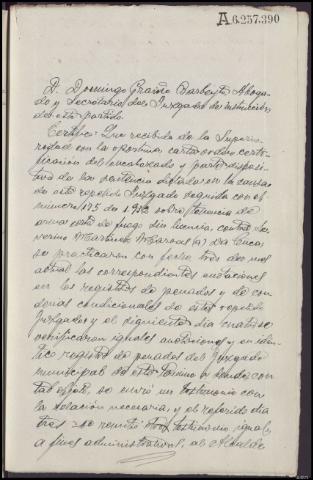 A.6.257.390
D. Domingo Graiño Barbeyto, Aboga-
do y Secretario del Juzgado de instrucción
de este partido.
Certifico: Que recibida de la Superio-
ridad con la oportuna carta orden certi-
ficación del encabezado y parte disposi-
tiva de la sentencia dictada en la causa
de este repetido Juzgado seguida con el
número 175 de 1912 sobre tenencia de
arma corta de fuego sin licencia, contra
Martinez (a)
se practicaron con fecha tres del mes
actual las correspondientes anotaciones
en los registros de penados y de con-
denas condicionales de este repetido
Juzgado y el siguiente día cuatro se
verificaron iguales anotaciones en idén-
tico registro de penados del Juzgado
municipal de este término a donde, con
tal objeto, se envió un testimonio con
la relación necesaria, y el referido día
tres se remitió otro testimonio igual,
a fines administrativos, al Alcalde